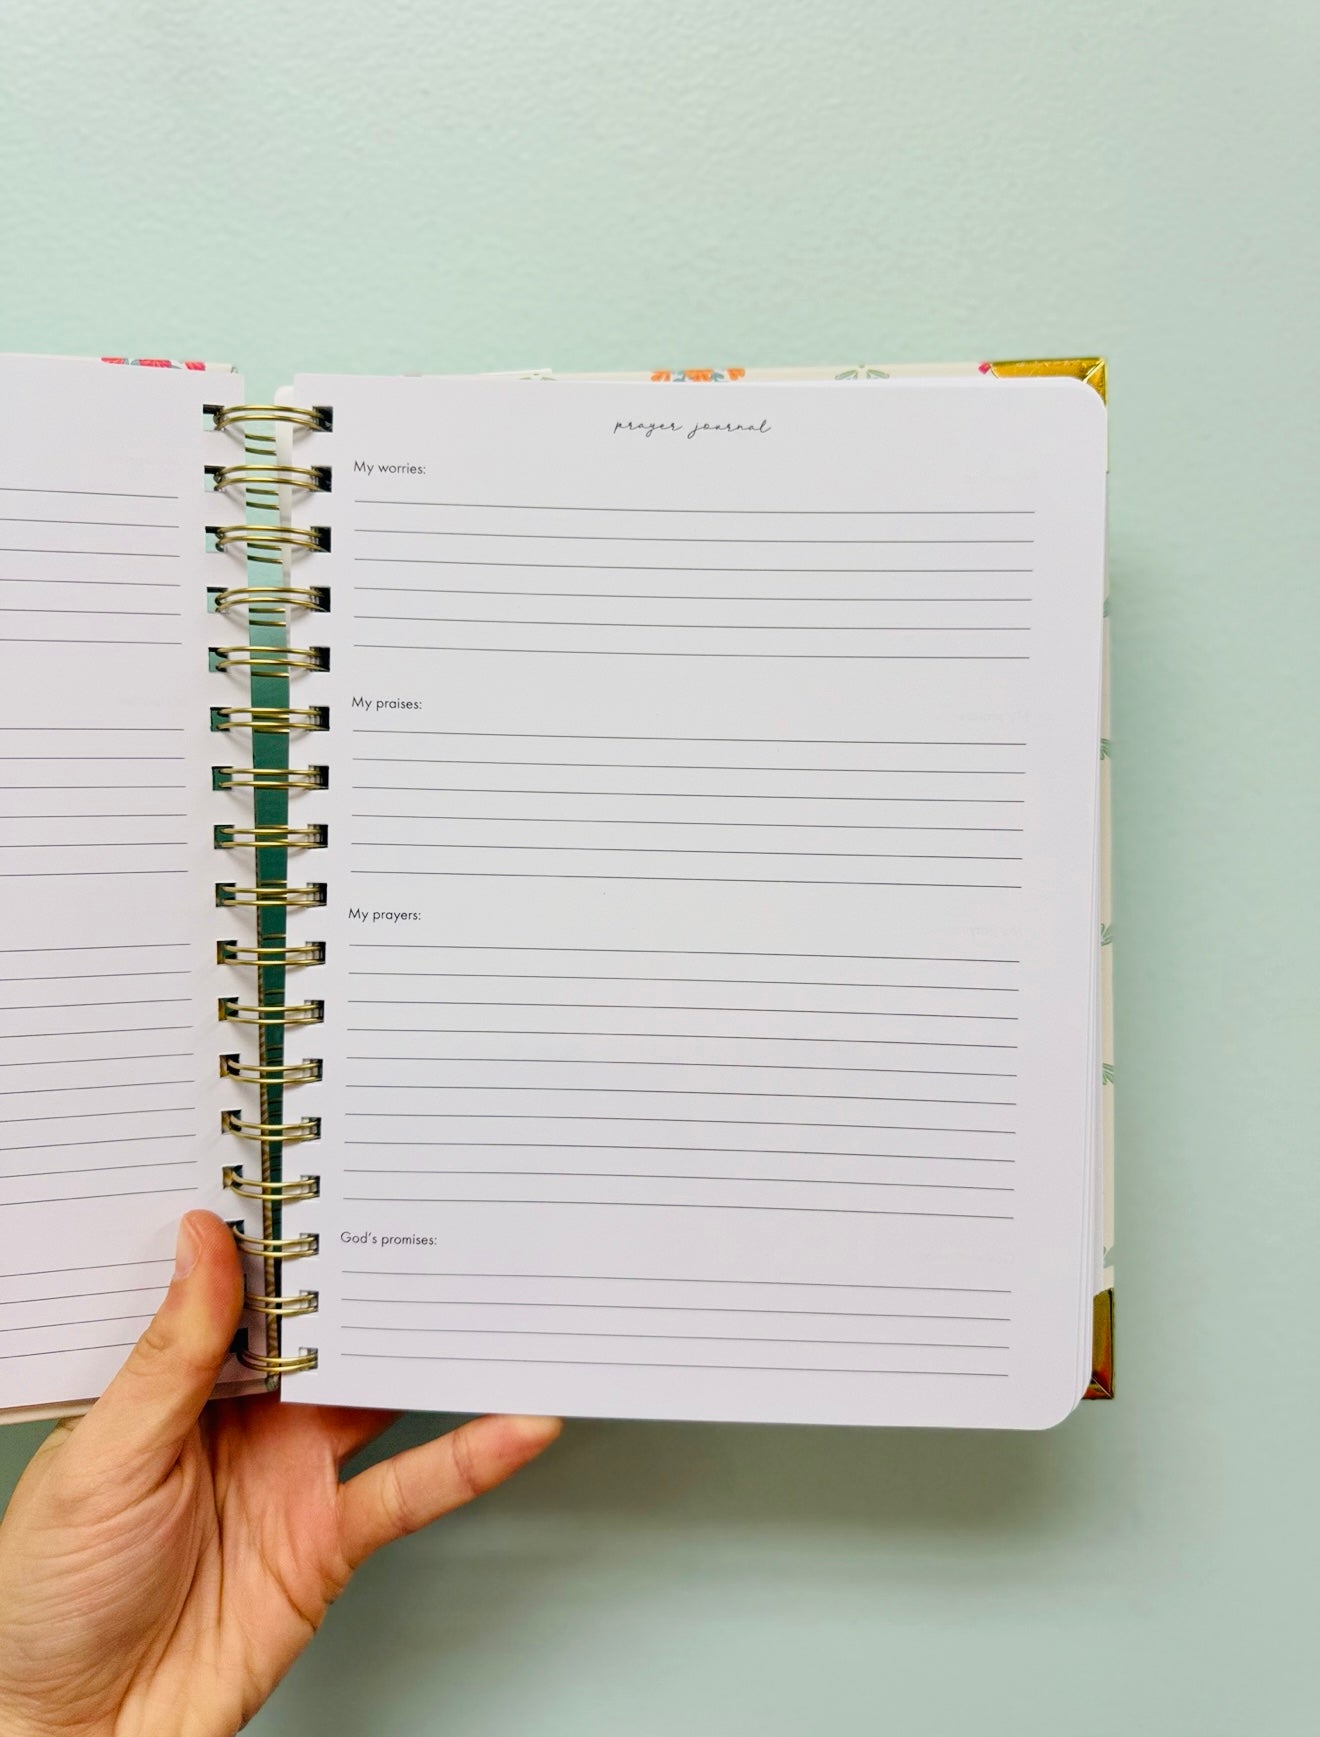 prayer journal
My worries:
My praises:
My prayers:
God's promises: